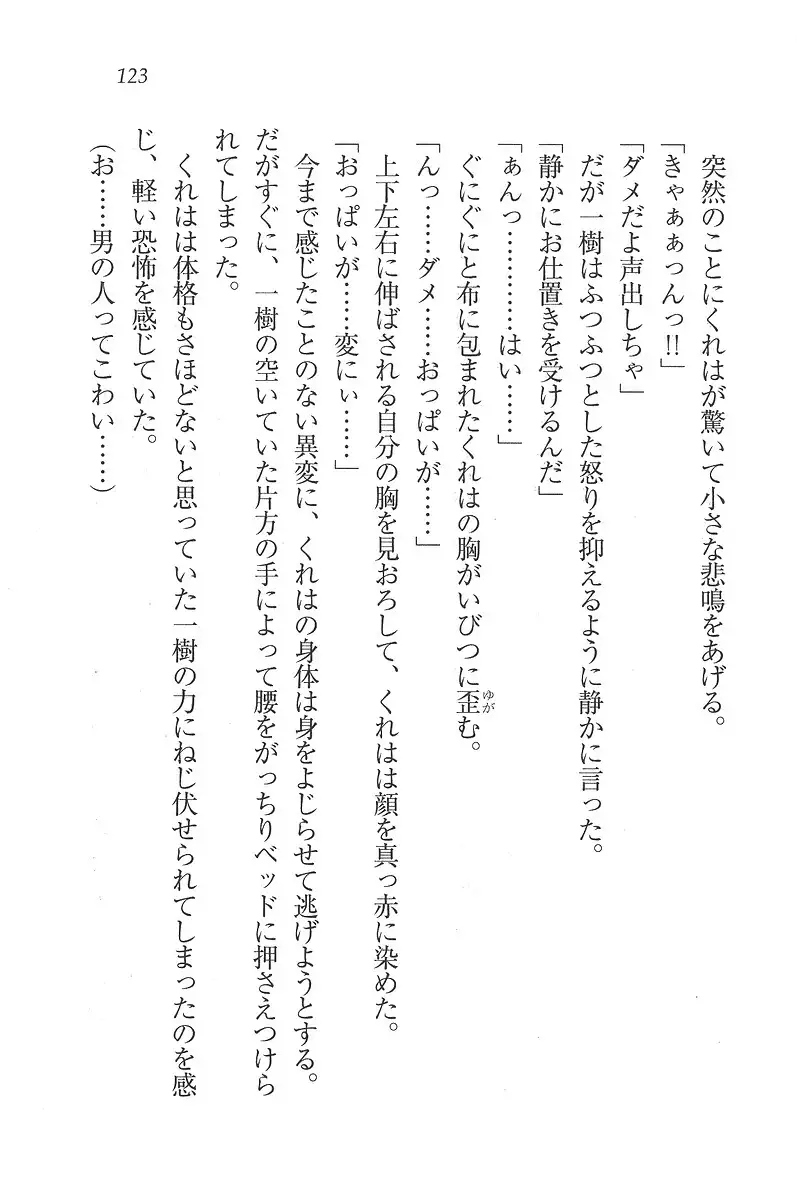 123
突然のことにくれはが驚いて小さな悲鳴をあげる。
「きゃぁぁっんっ!!」
「ダメだよ声出しちゃ」
だが一樹はふつふつとした怒りを抑えるように静かに言った。
「静かにお仕置きを受けるんだ」
「ぁんっ…………はい……」
ぐにぐにと布に包まれたくれはの胸がいびつに歪（ゆが）む。
「んっ……ダメ……おっぱいが……」
上下左右に伸ばされる自分の胸を見おろして、くれはは顔を真っ赤に染めた。
「おっぱいが……変にぃ……」
今まで感じたことのない異変に、くれはの身体は身をよじらせて逃げようとする。
だがすぐに、一樹の空いていた片方の手によって腰をがっちりベッドに押さえつけら
れてしまった。
くれはは体格もさほどないと思っていた一樹の力にねじ伏せられてしまったのを感
じ、軽い恐怖を感じていた。
（お……男の人ってこわい……）